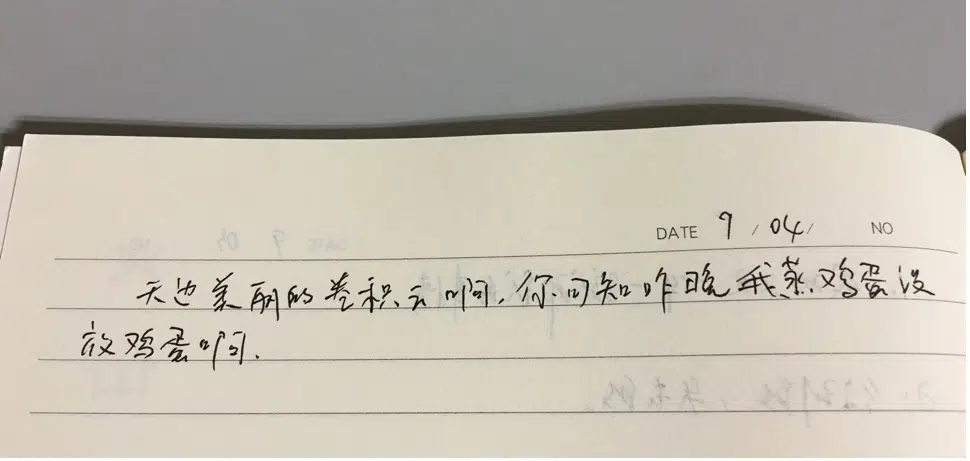 DATE 9 / 04 / NO
天边美丽的卷积云啊，你可知昨晚我蒸鸡蛋没
放鸡蛋啊.